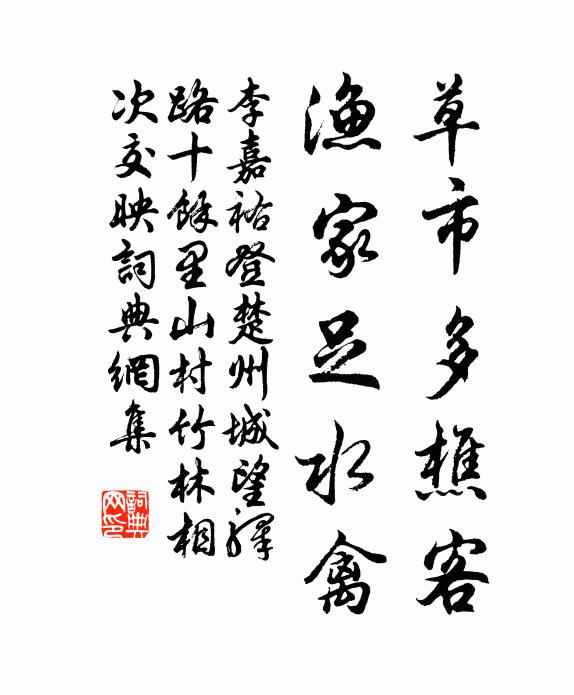 草市多樵客
渔家足水禽
李嘉祐登楚州城望驿
路十餘里山村竹林相
次交映詞典網集
詞典
网印